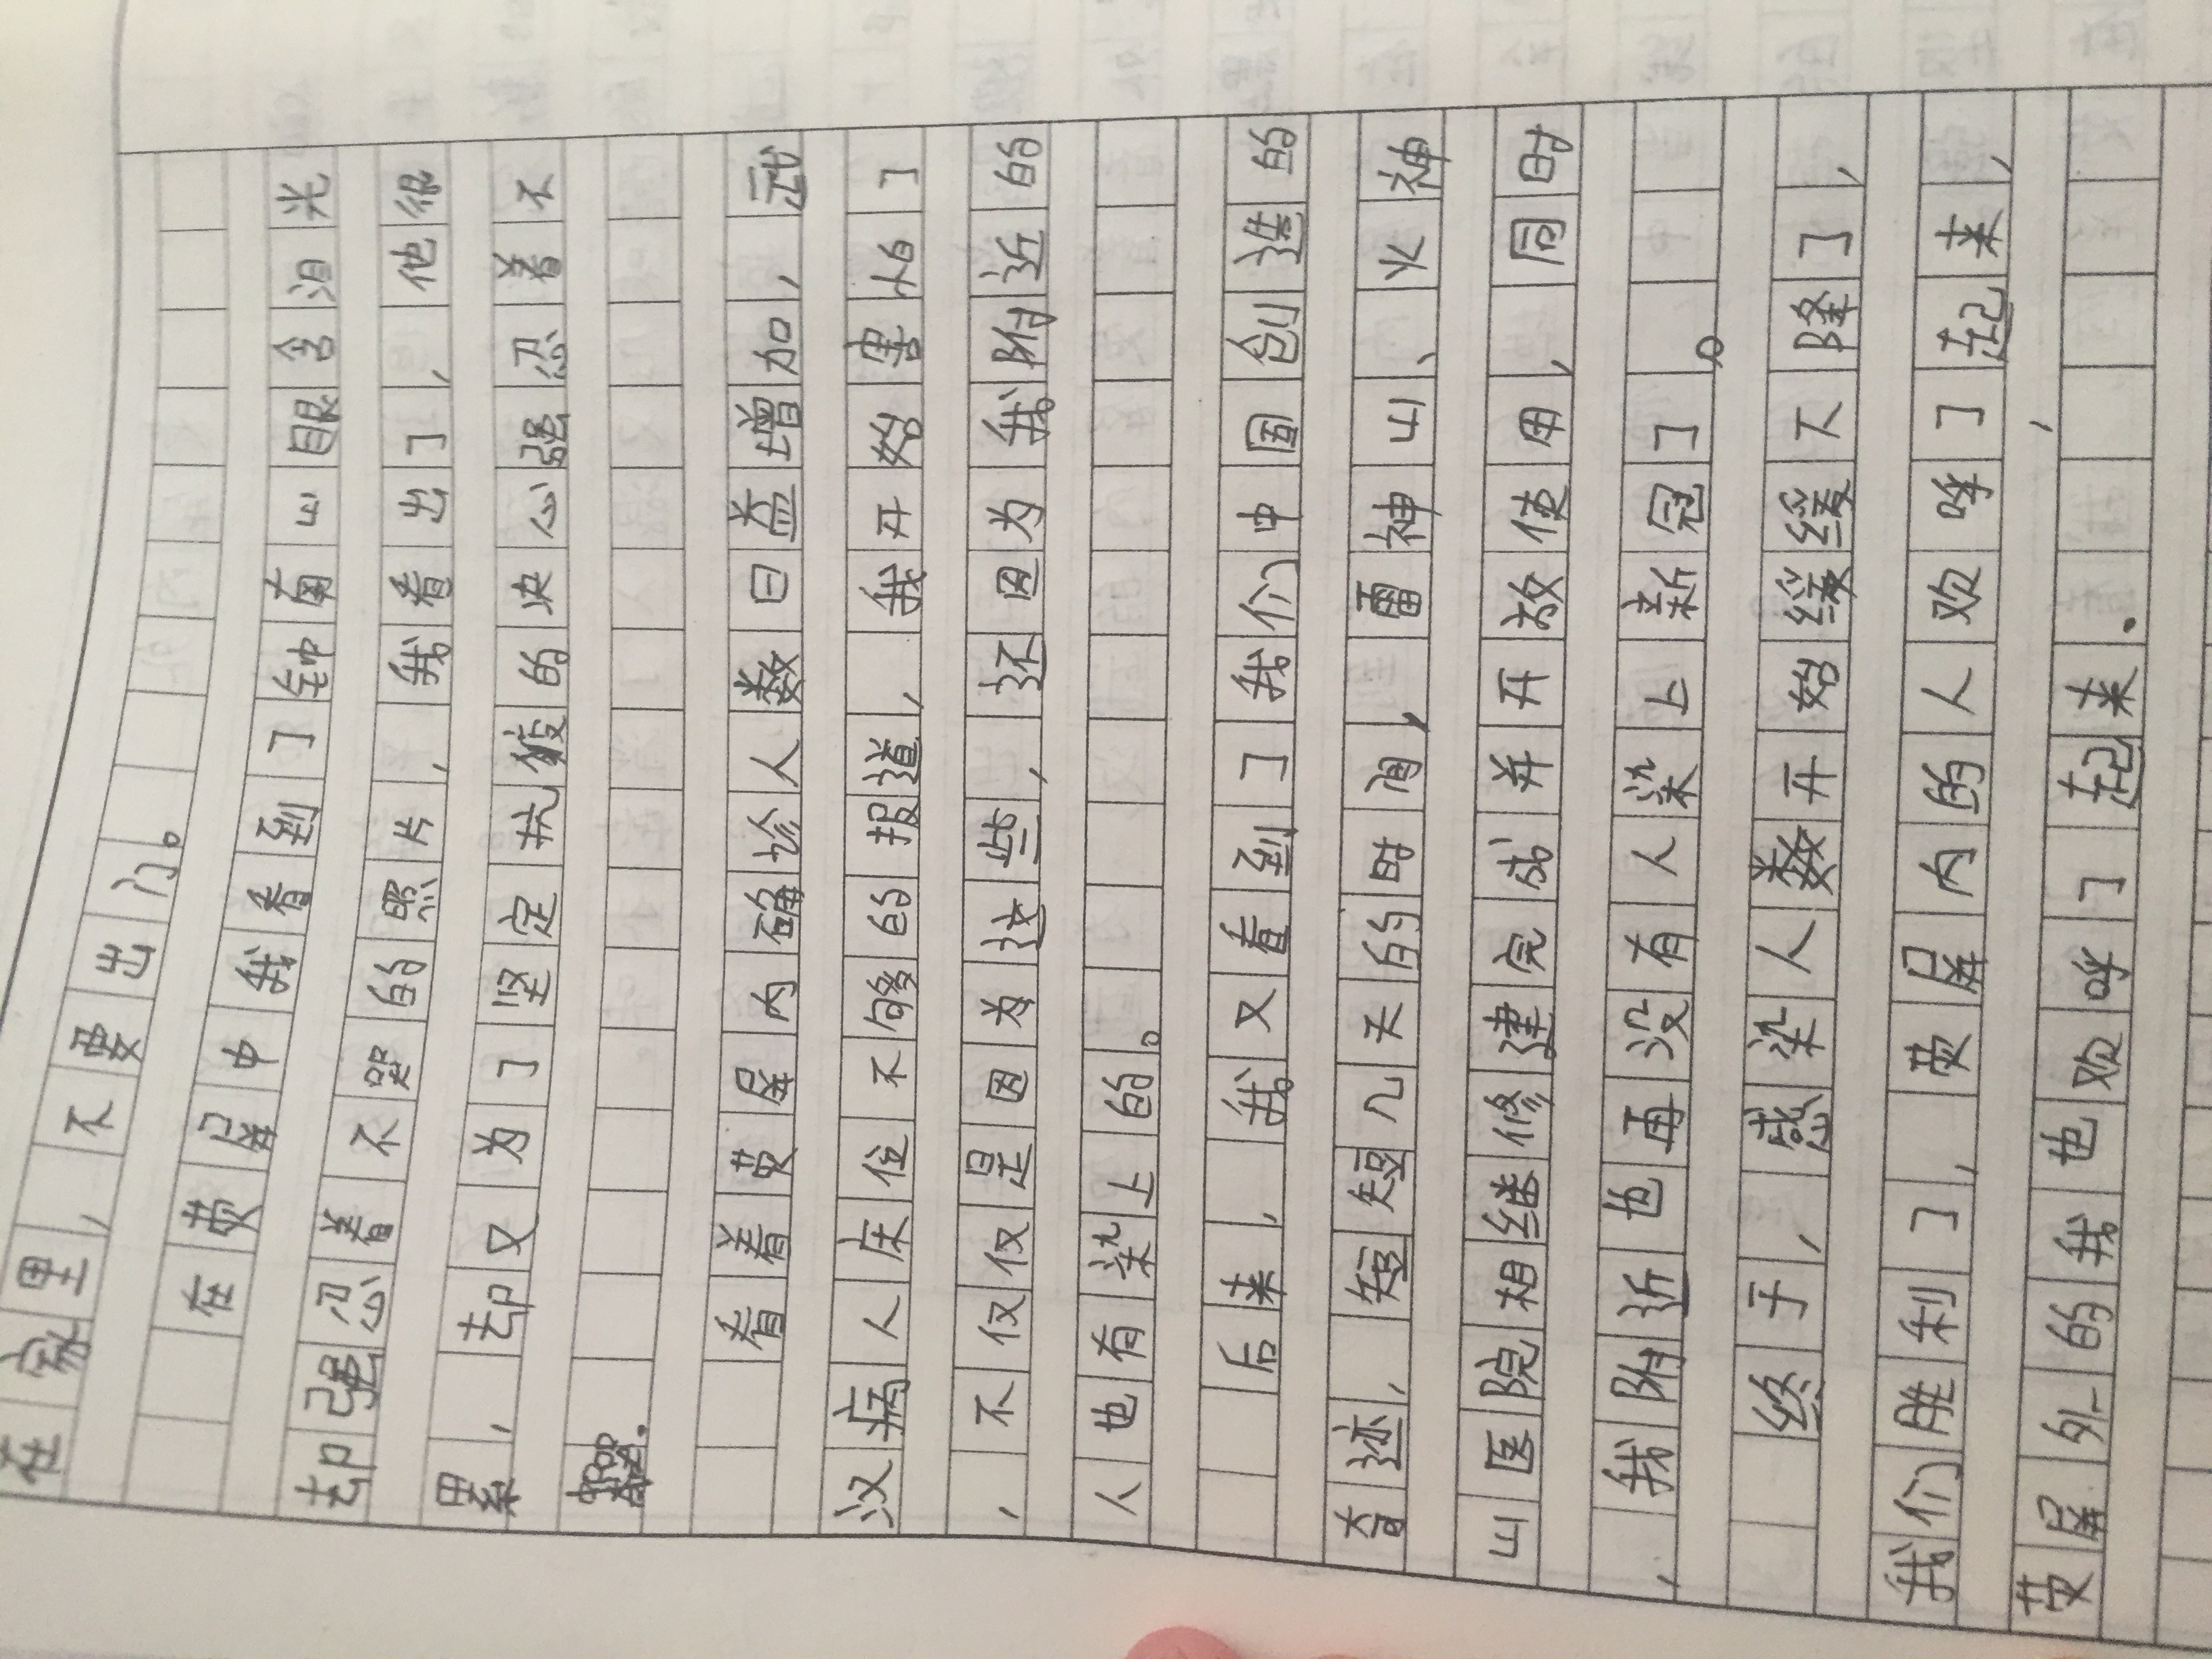 在家里，不要出门。
在荧屏中我看到了钟南山眼含泪光
却强忍着不哭的照片，我看出了，他很
累，却又为了坚定抗疫的决心强忍着不
哭。
看着荧屏内确诊人数日益增加，武
汉病人床位不够的报道，我开始害怕了
，不仅仅是因为这些，还因为我附近的
人也有染上的。
后来，我又看到了我们中国创造的
奇迹，短短几天的时间，雷神山、火神
山医院相继修建完成并开放使用，同时
，我附近也再没有人染上新冠了。
终于，感染人数开始缓缓下降了，
我们胜利了，荧屏内的人欢呼了起来，
荧屏外的我也欢呼了起来。